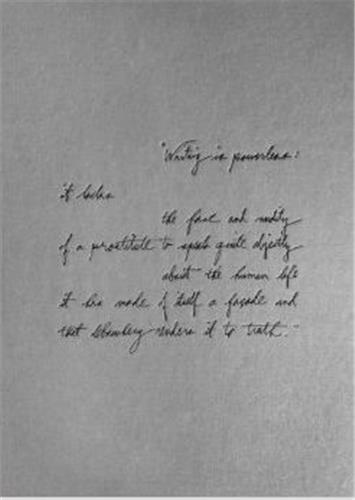 "Writing is powerless:
it lacks
the face and nudity
of a prostitute to speak quite directly
about the human life
it has made of itself a façade and
that slowly it to truth."